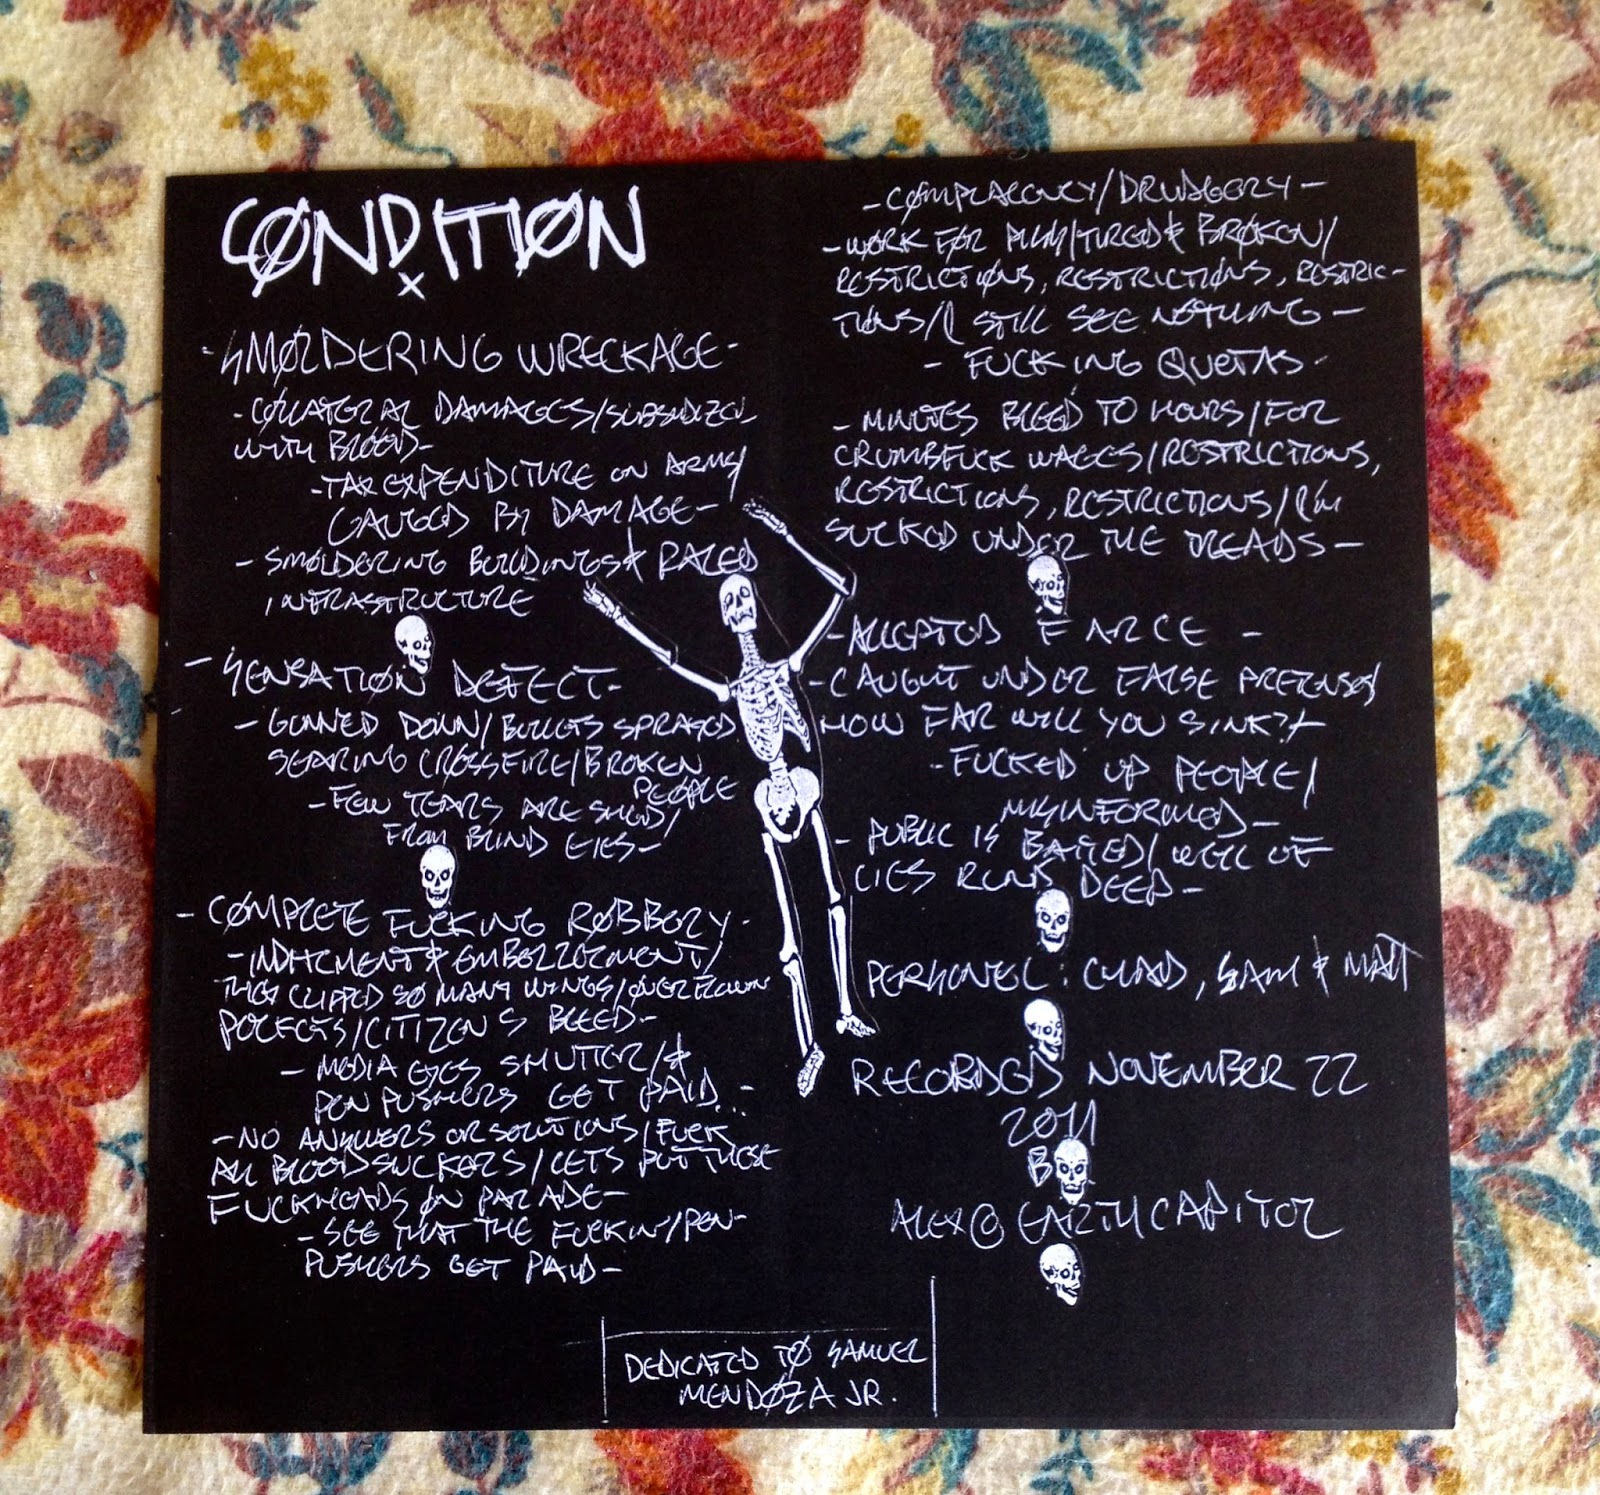 CØNDITIØN
x
- SMØLDERING WRECKAGE -
- COLLATERAL DAMAGES/SUBSIDIZED
WITH BLOOD -
- TAX EXPENDITURE ON ARMS/
GAUGED BY DAMAGE -
- SMOLDERING BUILDINGS & RAZED
INFRASTRUCTURE
- SENSATIØN DEFECT -
- GUNNED DOWN/BULLETS SPRAYED
SEARING CRØSSFIRE/BROKEN
PEOPLE
- FEW TEARS ARE SHED/
FROM BLIND EYES -
- CØMPLETE FUCKING RØBBERY -
- INDITCMENT & EMBEZZLEMENT/
THEY CLIPPED SO MANY WINGS/OVERFLOWN
POCKETS/CITIZENS BLEED -
- MEDIA EYES SHUTTER/&
PEN PUSHERS GET PAID -
- NO ANSWERS OR SOLUTIONS/FUCK
ALL BLOODSUCKERS/LETS PUT THESE
FUCKHEADS ØN PARADE -
- SEE THAT THE FUCKIN/PEN-
PUSHERS GET PAID -
- CØMPLACENCY/DRUDGERY -
- WORK FØR /TIRED & BRØKEN/
RESTRICTIØNS, RESTRICTIØNS, RESTRIC-
TIØNS/I STILL SEE NØTHING -
- FUCKING QUOTAS -
- MINUTES BLEED TO HOURS/FOR
CRUMBFUCK WAGES/RESTRICTIONS,
RESTRICTIONS, RESTRICTIONS/I'M
SUCKED UNDER THE TREADS -
- ACCEPTED FARCE -
- CAUGHT UNDER FALSE PRETENSES/
HOW FAR WILL YOU SINK?/
- FUCKED UP PEOPLE/
MISINFORMED -
- PUBLIC IS BAITED/WELL OF
LIES RUNS DEEP -
PERSONEL: CHAD, SAM & MATT
RECORDED NOVEMBER 22
2011
B
ALEX @ EARTH CAPITOL
DEDICATED TØ SAMUEL
MENDØZA JR.